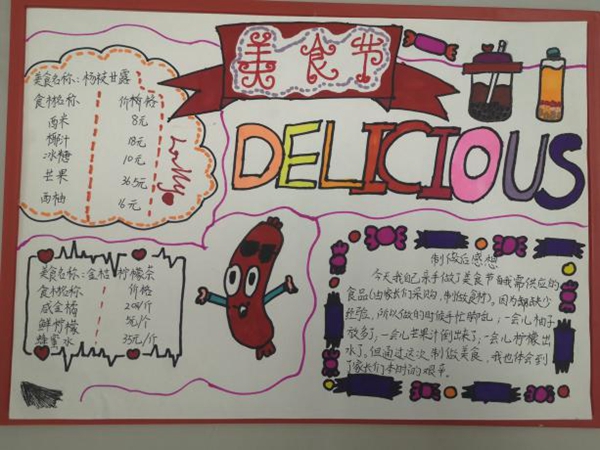 美食节
DELICIOUS
美食名称：杨枝甘露
食材名称 价格
西米 8元
椰汁 18元
冰糖 10元
芒果 36.5元
西柚 16元
美食名称：金桔柠檬茶
食材名称 价格
咸金橘 20/斤
鲜柠檬 元/个
蜂蜜水 35元/个
制做后感想
今天我自己亲手做了美食节自我需供应的
食品(由家长们采购,制做食材),因为缺少
经验,所以做的时候手忙脚乱:一会儿柚子
放多了,一会儿芒果汁倒出来了,一会儿柠檬出
水了。但通过这次制做美食,我也体会到
了家长们的艰辛。